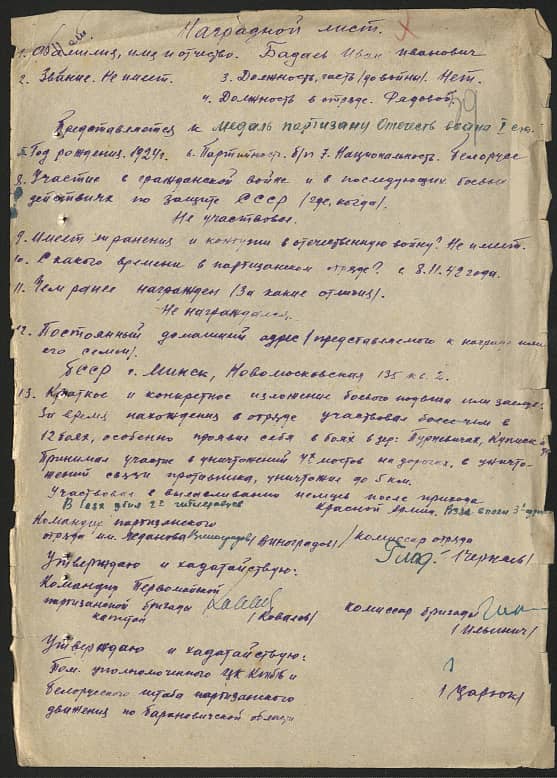 Наградной лист.
1. Фамилия, имя и отчество. Бадаев Иван Иванович
2. Звание. Не имеет. 3. Должность, часть (до войны). Нет.
4. Должность в отряде. Рядовой.
Представляется к медаль партизану Отечеств войны I степ.
5. Год рождения. 1924 г. 6. Партийность. б/п 7. Национальность. белорус
8. Участие в гражданской войне и в последующих боевых
действиях по защите СССР (где, когда).
Не участвовал.
9. Имеет ли ранения и контузии в отечественную войну? Не имеет.
10. С какого времени в партизанском отряде? с 8.11.42 года.
11. Чем ранее награжден (за какие отличия).
Не награждался.
12. Постоянный домашний адрес (представляемого к награде или
его семьи).
БССР г. Минск, Новомосковская 135 кв. 2.
13. Краткое и конкретное изложение боевого подвига или заслуг.
За время нахождения в отряде участвовал более чем в
12 боях, особенно проявил себя в боях в дер:
Принимал участие в уничтожений 4х мостов на дорогах, в уничто-
жений связи противника, уничтожил до 5 км.
Участвовал в вылавливании немцев после прихода
Красной Армии.
В боях убил 2х гитлеровцев
Командир партизанского
отряда им. Жданова (Виноградов)
комиссар отряда
(Черняев)
Утверждаю и хадатайствую:
Командир Первомайской
партизанской бригады
капитан (Ковалев)
комиссар бригады
(Ильинич)
Утверждаю и хадатайствую:
уполномоченного ЦК КПбБ и
Белорусского штаба партизанского
движения по Барановической области
(Царюк)